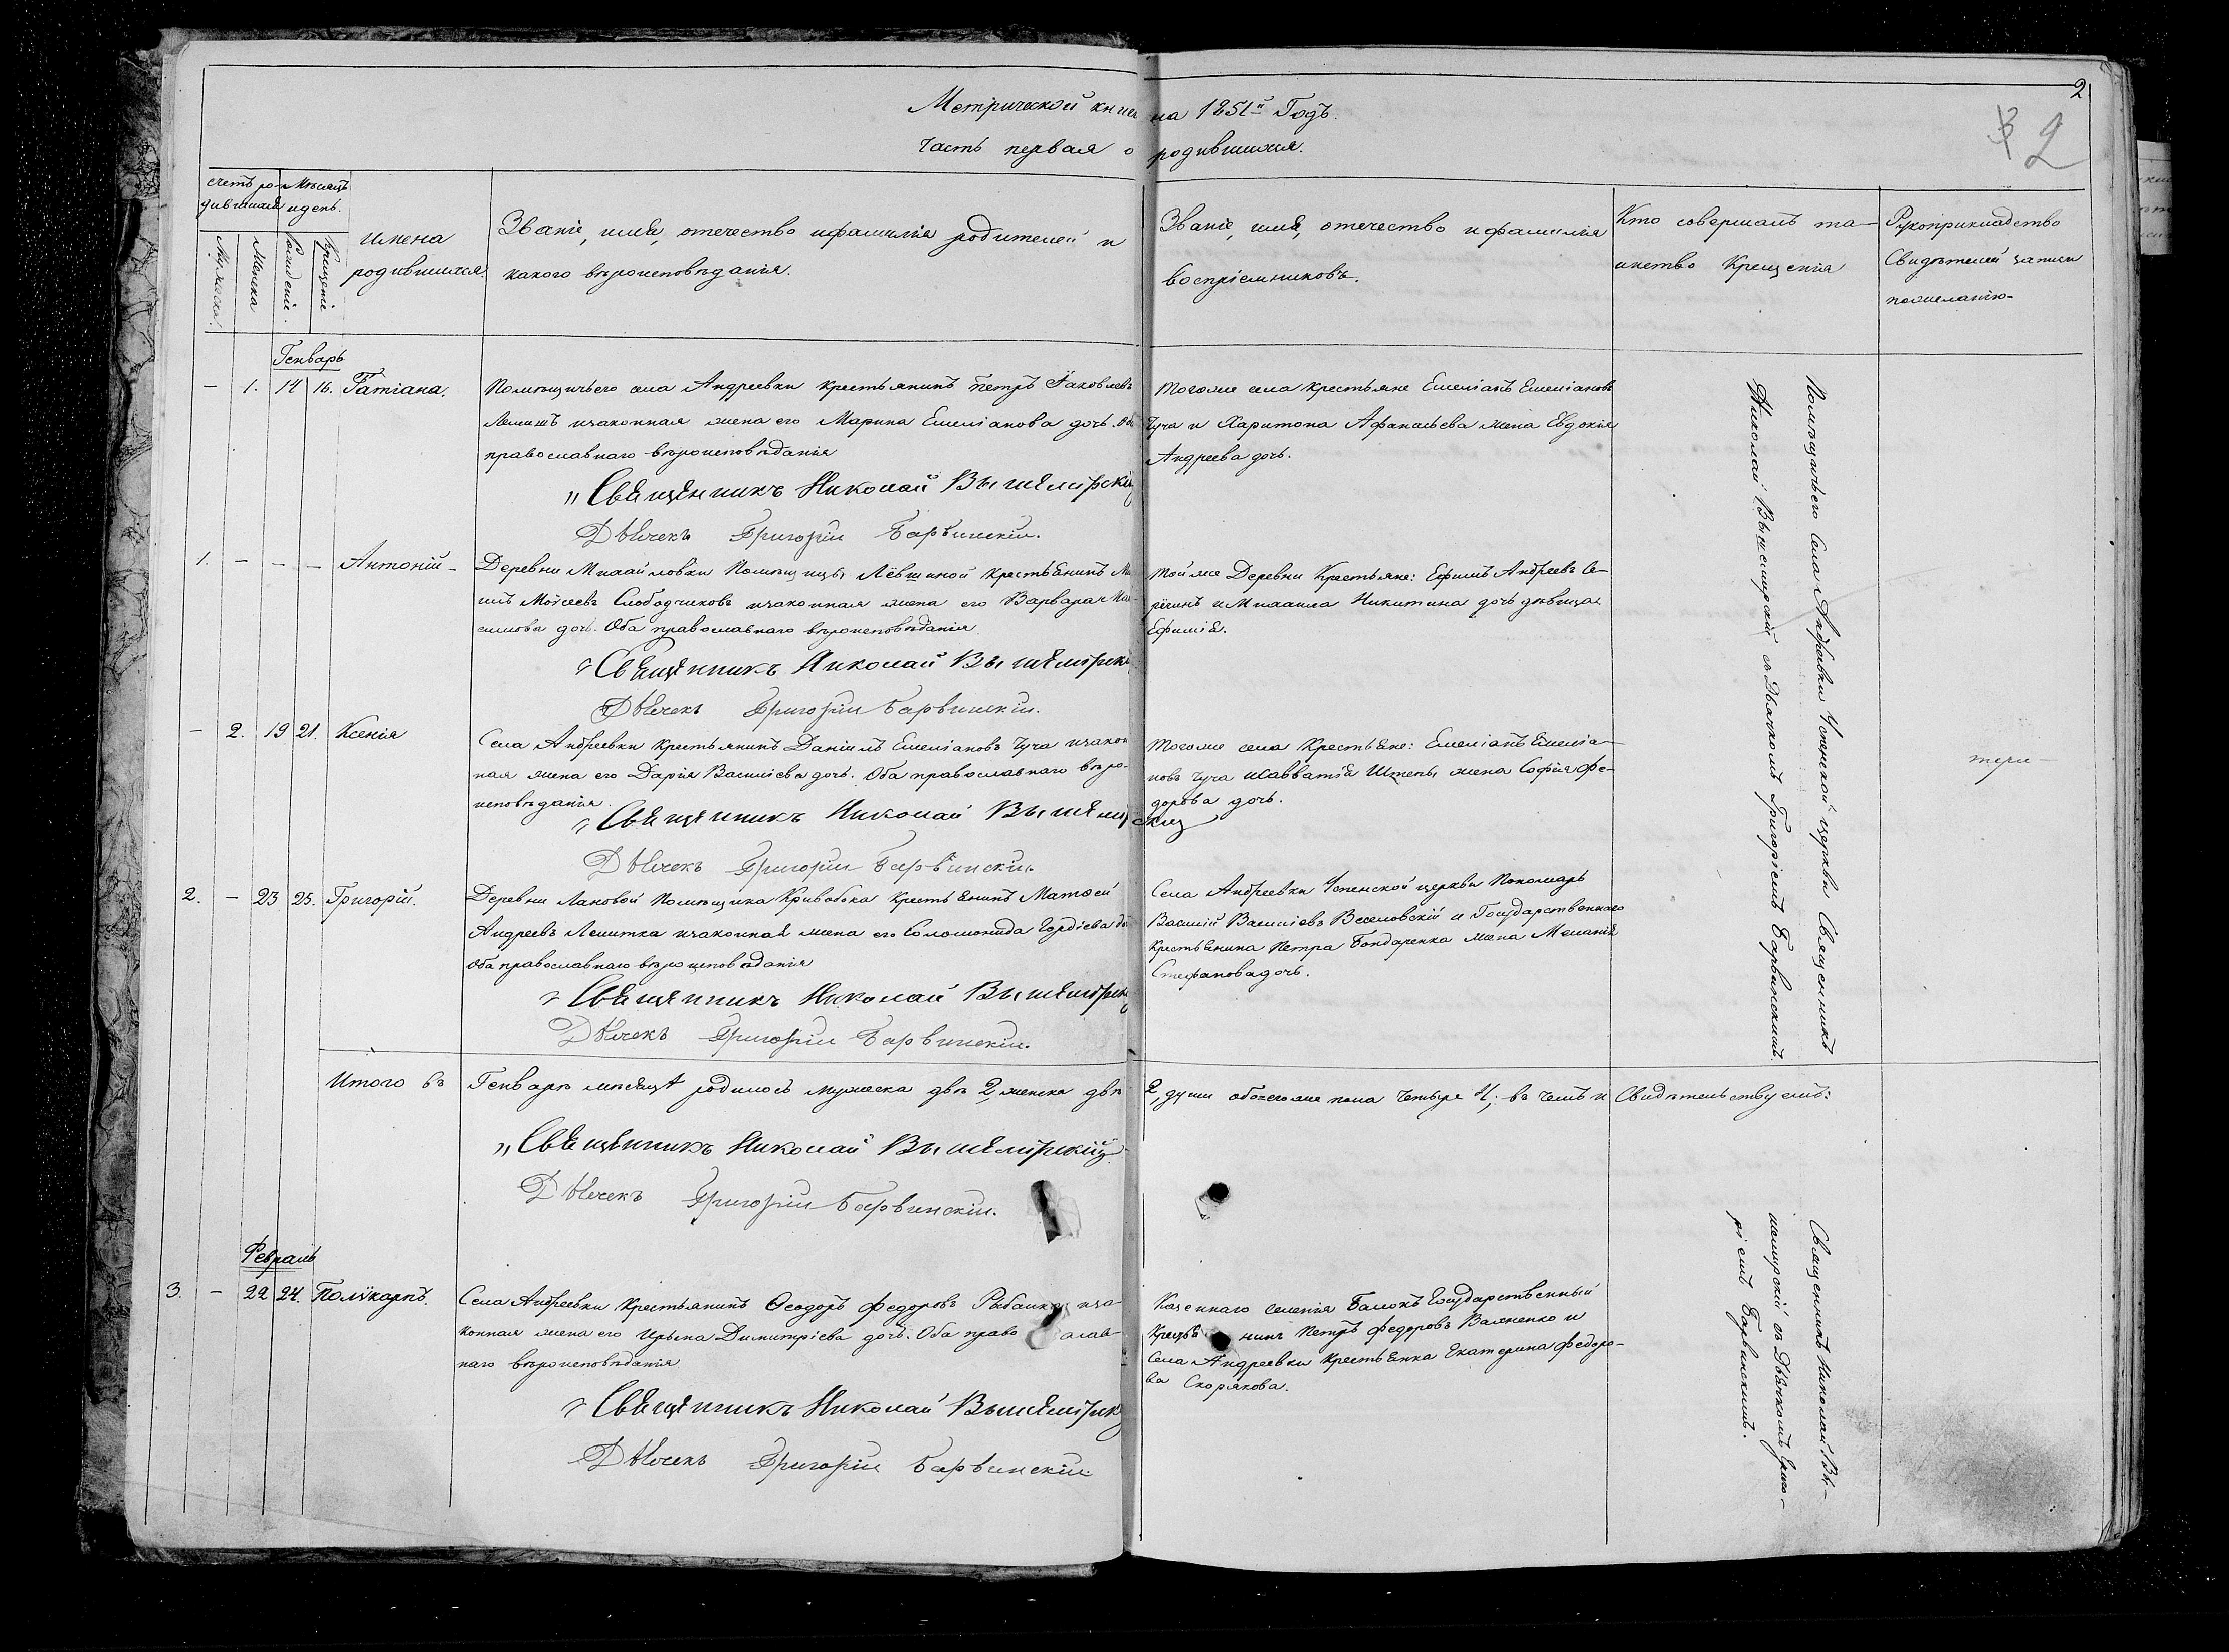 2
Метрической книги на 1851й Годъ.
2
Часть первая о родившихся.
счетъ ро-
дившихся
Мѣсяцъ
и день.
Мужеска.
Женска
Рожденіе.
Крещеніе
имена
родившихся
Званіе, имя, отечество и фамилія родителей и
какого вѣроисповѣданія.
Званіе, имя, отечество и фамилія
воспріемниковъ.
Кто совершалъ та-
инство Крещенія
Рукоприкладство
Свидѣтелей записи
по желанію
Генварь
– 1. 14 16. Татіана.
Помѣщичьего села Андреевки крестьянинъ Петръ Іаковлевъ
и законная жена его Марина Емеліанова дочь. Оба
православнаго вѣроисповѣданія
„Священникъ Николай Вышемірскій
Дьячекъ Григорій Барвинскій.
Тогоже села крестьяне Емеліанъ Емеліановъ
Чуча и Харитона Афанасьева жена Евдокія
Андреева дочь.
1. – – – Антоній –
Деревни Михайловки Помѣщицы Лёвшиной крестьянинъ
Моѵсеевъ Слободчиковъ и законная жена его Варвара
симова дочь. Оба православнаго вѣроисповѣданія
Священникъ Николай Вышемірскій
Дьячекъ Григорій Барвинскій.
Той же Деревни Крестьяне: Ефимъ Андреевъ Се-
и Михаила Никитина дочь дѣвица
Ефимія.
– 2. 19 21. Ксенія
Села Андреевки крестьянинъ Даніилъ Емеліановъ Чуча и закон
ная жена его Дарія Василіева дочь. Оба православнаго вѣро-
исповѣданія.
Священникъ Николай Вышемірскій
Дьячекъ Григорій Барвинскій
Тогоже села Крестьяне: Емеліанъ Емеліа-
новъ Чуча и Савватія Штепы жена Софія Фе-
дорова дочь.
2. – 23 25. Григорій.
Деревни Лановой Помѣщика Кривобока Крестьянинъ Матѳей
Андреевъ и законная жена его Соломонида Гордіева
Оба православнаго вѣроисповѣданія
Священникъ Николай Вышемірскій
Дьячекъ Григорій Барвинскій.
Села Андреевки Успенской церкви Пономарь
Василій Василіевъ Веселовскій и Государственнаго
крестьянина Петра Бондаренка жена Меланія
Стефанова дочь.
Помѣщичьего Села Андреевки Успенской церкви Священникъ
Николай Вышемирскій съ Дьячкомъ Григоріемъ Барвинскимъ.
Итого въ Генварѣ мѣсяцѣ родилось мужеска двѣ 2, женска двѣ
2, души обоегоже пола четыре 4; въ чемъ и Свидѣтельствуемъ:
„Священникъ Николай Вышемірскій
Дьячекъ Григорій Барвинскій.
Февраль
3. – 22 24. Поликарпъ.
Села Андреевки Крестьянинъ Ѳеодоръ Федоровъ и за-
конная жена его Ирына Димитріева дочь. Оба право слав-
наго вѣроисповѣданія
Священникъ Николай Вышемірскій
Дьячекъ Григорій Барвинскій
Казеннаго селенія Балокъ Государственный
Петръ Федоровъ и
Села Андреевки крестьянка Екатерина Федоро-
ва Скорякова.
Священникъ Николай Вы-
шемирскій съ Дьячкомъ Григо-
ріемъ Барвинскимъ.